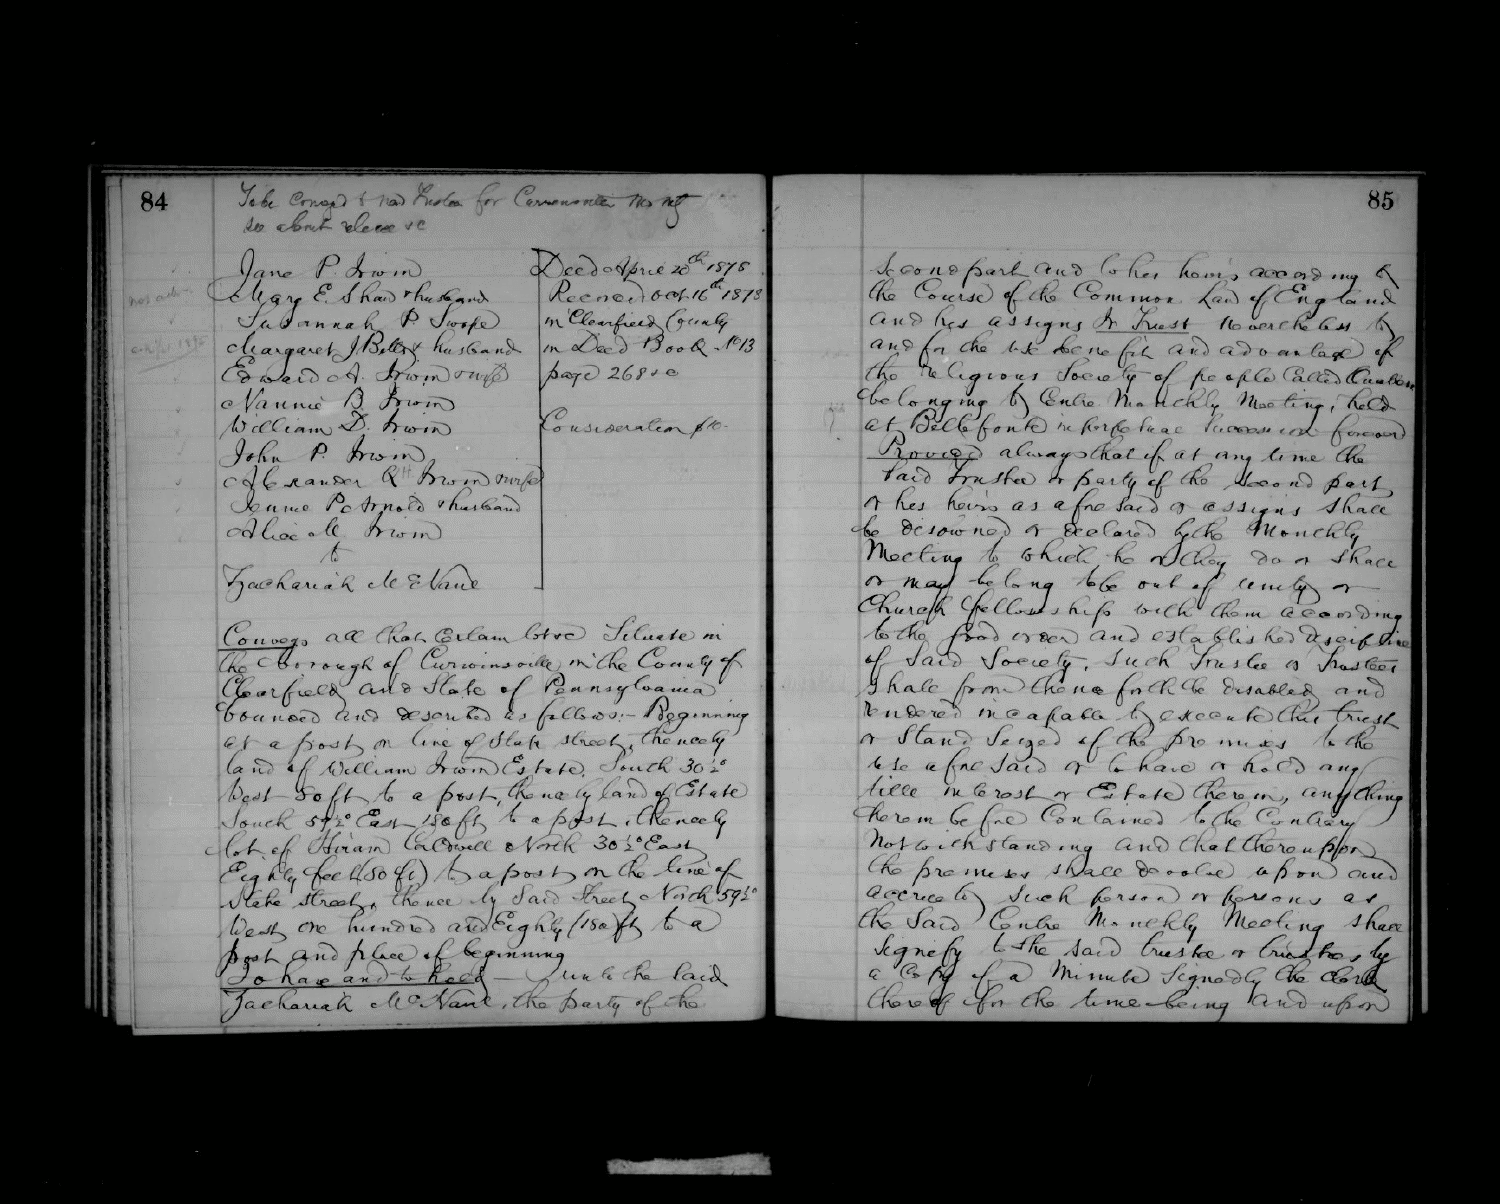 84
To be conveyed to new Trustee for Curwensville Mo Mtg
see about release &c
Jane P. Irwin
Mary E. Shaw & husband
Susannah P Swope
Margaret J Betts & husband
Edward A. Irwin & wife
Nannie B Irwin
William D. Irwin
John P. Irwin
Alexander R H Irwin & wife
Jennie P Arnold & husband
Alice M Irwin
to
Zachariah McNaul
Deed April 20th 1878
Received Oct 16th 1878
in Clearfield County
in Deed Book No 13
page 268 &c
Consideration $10-
Conveys all that certain lot &c Situate in
the Borough of Curwinsville in the County of
Clearfield and State of Pennsylvania
bounded and described as follows:- Beginning
at a post on line of State street, thence by
land of William Irwin Estate, South 30½°
West 80 ft to a post, thence by land of Estate
South 59½° East 180 ft to a post, thence by
lot of Hiram Caldwell North 30½° East
Eighty feet (80 ft) to a post on the line of
State street, thence by Said Street North 59½°
West one hundred and Eighty (180) ft to a
post and place of beginning
To have and to hold - unto the said
Zachariah McNaul, the party of the
85
Second part and to his heirs according to
the Course of the Common Law of England
and his assigns In Trust nevertheless to
and for the use benefit and advantage of
the religious Society of people called Quakers
belonging to Centre Monthly Meeting, held
at Bellefonte in perpetual Succession forever
Provided always that if at any time the
Said Trustee or party of the Second part
or his heirs as aforesaid or assigns shall
be disowned or declared by the Monthly
Meeting to which he or they do or shall
or may belong to be out of unity or
Church fellowship with them according
to the good order and established discipline
of Said Society, Such Trustee or Trustees
shall from thence forth be disabled and
rendered incapable to execute this trust
or Stand Seized of the premises to the
use aforesaid or to have or hold any
title interest or Estate therein, anything
herein before Contained to the Contrary
Notwithstanding and that thereuppon
the premises shall devolve upon and
accrue to such person or persons as
the Said Centre Monthly Meeting shall
Signify to the said trustee or trustees, by
a Copy of a Minute Signed by the clerk
thereof for the time being and upon